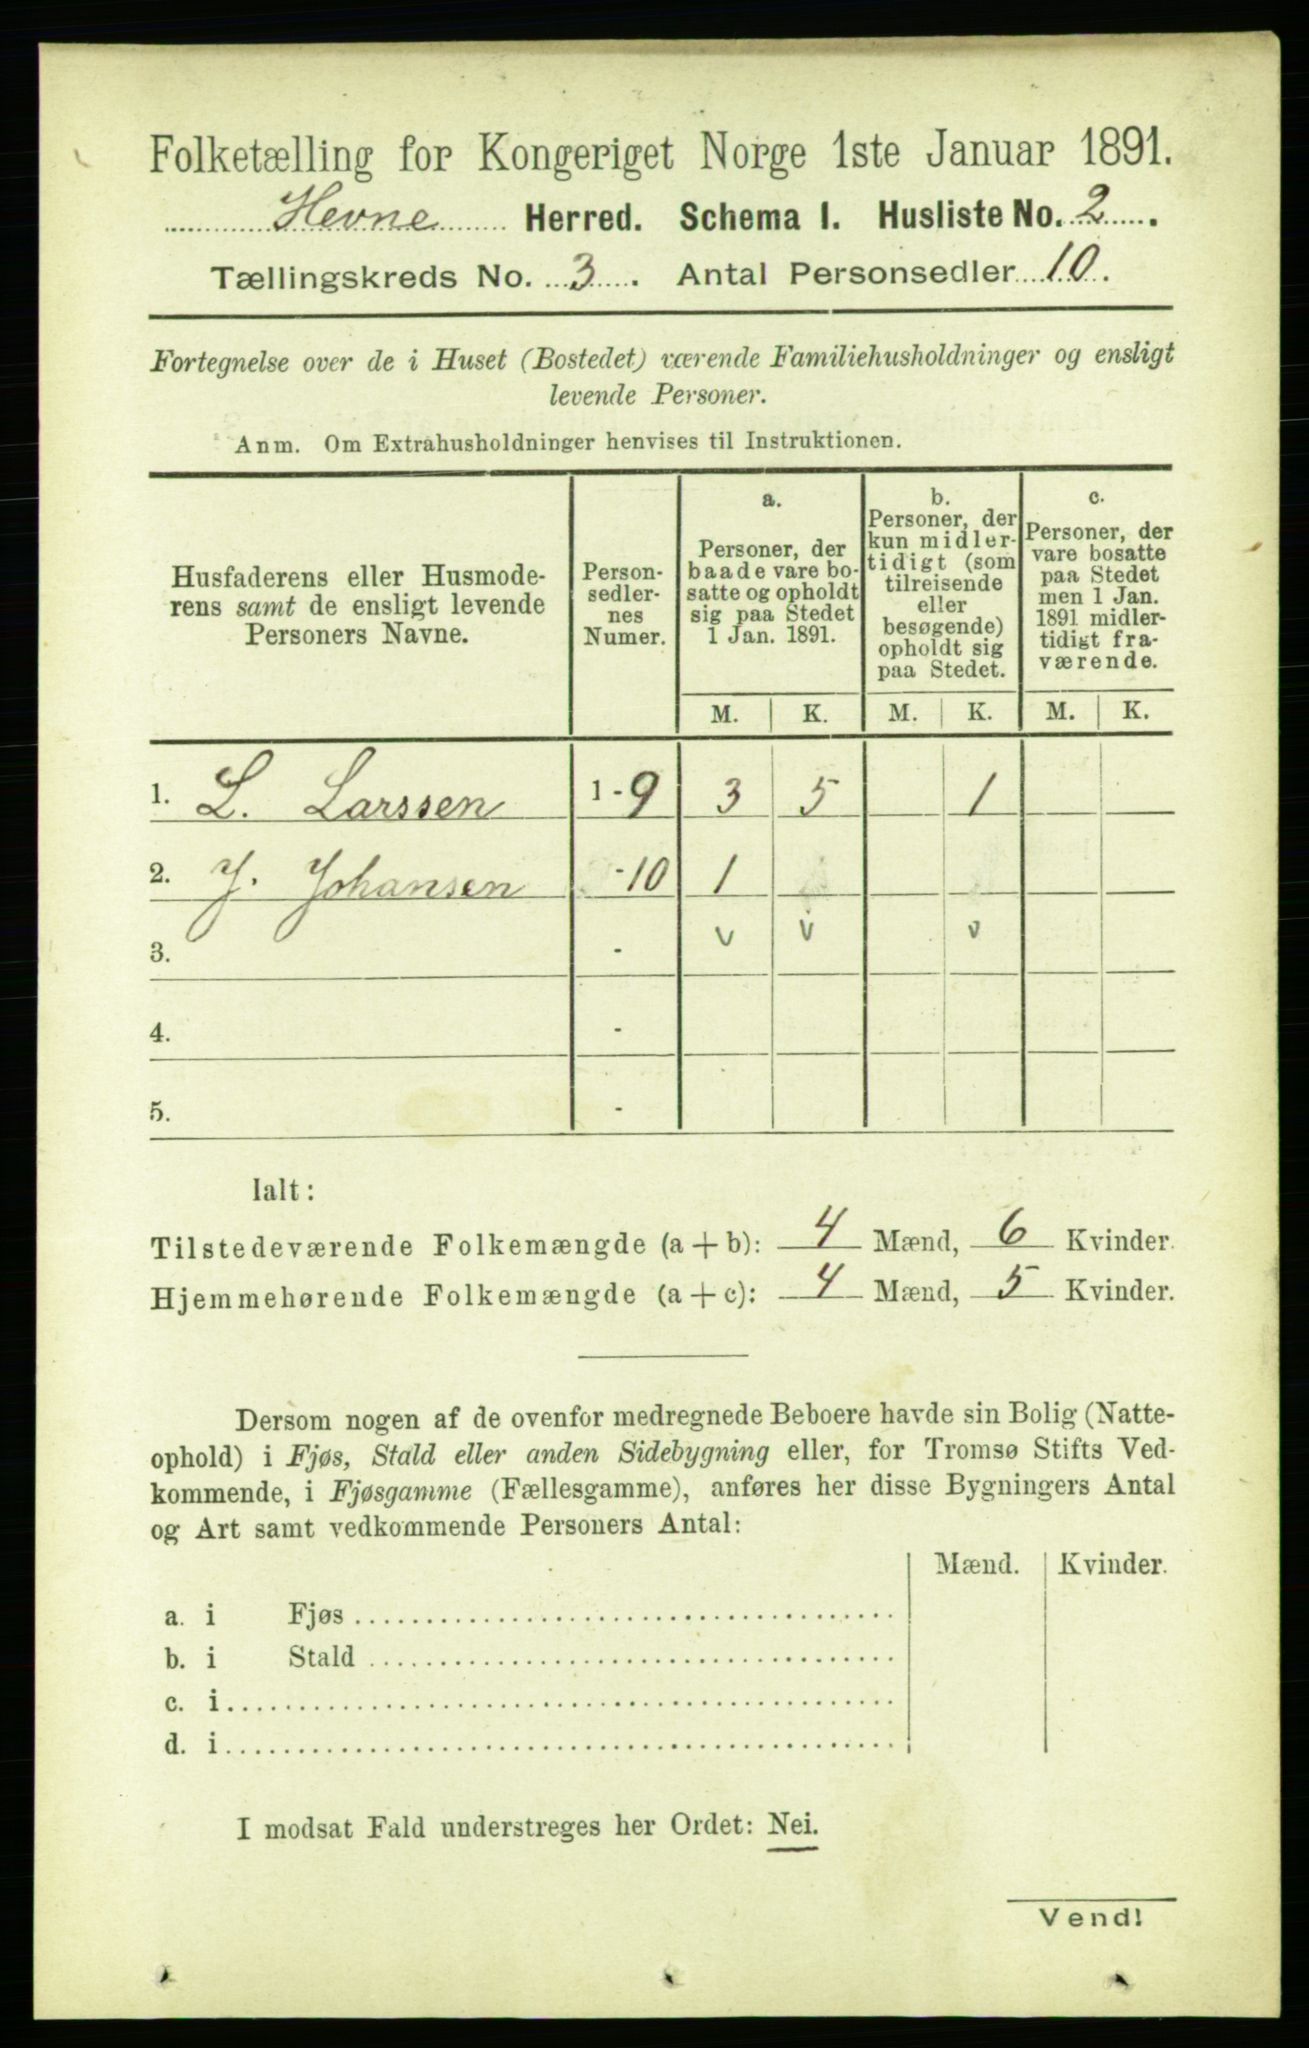 Folketælling for Kongeriget Norge 1ste Januar 1891.
Hevne Herred. Schema I. Husliste No. 2.
Tællingskreds No. 3. Antal Personsedler 10.
Fortegnelse over de i Huset (Bostedet) værende Familiehusholdninger og ensligt
levende Personer.
Anm. Om Extrahusholdninger henvises til Instruktionen.
Husfaderens eller Husmode-
rens samt de ensligt levende
Personers Navne.
Person-
sedler-
nes
Numer.
a.
Personer, der
baade vare bo-
satte og opholdt
sig paa Stedet
1 Jan. 1891.
b.
Personer, der
kun midler-
tidigt (som
tilreisende
eller
besøgende)
opholdt sig
paa Stedet.
c.
Personer, der
vare bosatte
paa Stedet
men 1 Jan.
1891 midler-
tidigt fra-
værende.
M. K. M. K. M. K.
1. L. Larssen 1-9 3 5 1
2. J. Johansen -10 1
3. - v v v
4. -
5. -
Ialt:
Tilstedeværende Folkemængde (a+b): 4 Mænd, 6 Kvinder.
Hjemmehørende Folkemængde (a+c): 4 Mænd, 5 Kvinder.
Dersom nogen af de ovenfor medregnede Beboere havde sin Bolig (Natte-
ophold) i Fjøs, Stald eller anden Sidebygning eller, for Tromsø Stifts Ved-
kommende, i Fjøsgamme (Fællesgamme), anføres her disse Bygningers Antal
og Art samt vedkommende Personers Antal:
Mænd. Kvinder.
a. i Fjøs
b. i Stald
c. i
d. i
I modsat Fald understreges her Ordet: Nei.
Vend!